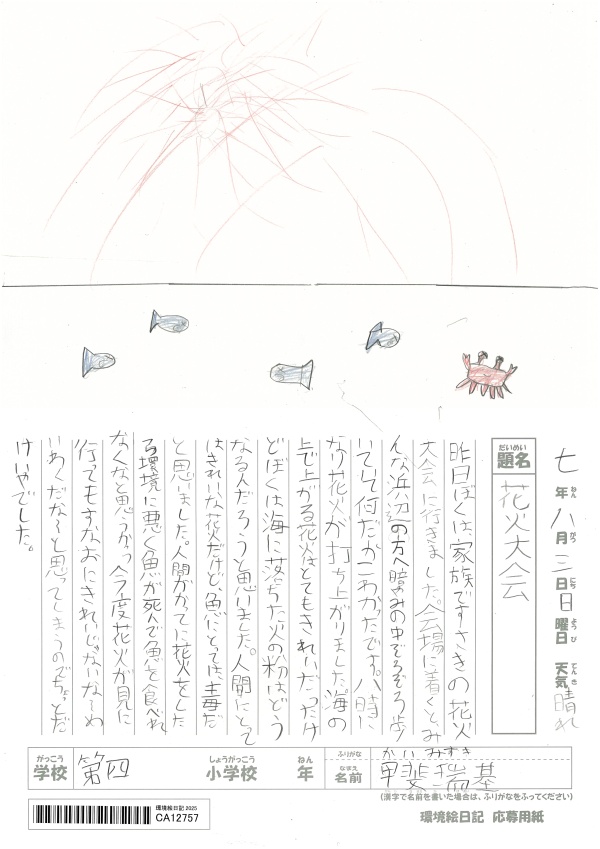 七年八月三日日曜日 天気晴れ
ねん がつ にち ようび てんき
だいめい
題名 花火大会
昨日ぼくは家族ですさきの花火
大会に行きました。会場に着くとみ
んな浜辺の方へ暗やみの中ぞろぞろ歩
いていて何だかこわかったです。八時に
なり花火が打ち上がりました。海の
上で上がる花火はとてもきれいだったけ
どぼくは海に落ちた火の粉はどう
なるんだろうと思いました。人間にとって
はきれいな花火だけど魚にとっては、毒だ
と思いました。人間がかってに花火をした
ら環境に悪く魚が死んで魚を食べれ
なくなと思うがっ今度花火が見に
行ってもすなおにきれいじゃないな〜わ
いわくだな〜と思ってしまうのでちょっとだ
けいやでした。
がっこう
学校 第四
しょうがっこう
小学校
ねん
年
ふりがな かいみずき
なまえ
名前 甲斐瑞基
(漢字で名前を書いた場合は、ふりがなをふってください)
環境絵日記 2025
CA12757
環境絵日記 応募用紙